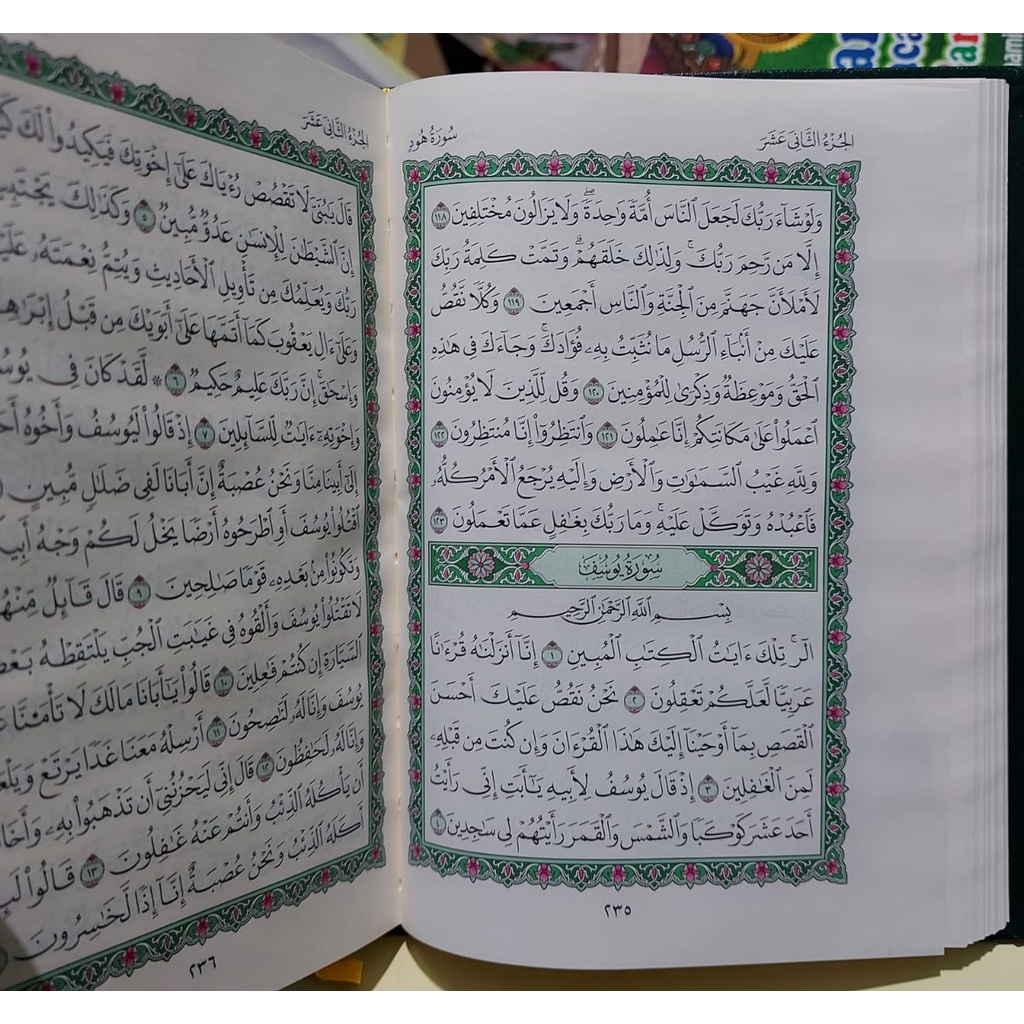 الجزء الثاني عشر
سورة هود
وَلَوْ شَاءَ رَبُّكَ لَجَعَلَ النَّاسَ أُمَّةً وَاحِدَةً ۖ وَلَا يَزَالُونَ مُخْتَلِفِينَ ١١٨
إِلَّا مَن رَّحِمَ رَبُّكَ ۚ وَلِذَٰلِكَ خَلَقَهُمْ ۗ وَتَمَّتْ كَلِمَةُ رَبِّكَ
لَأَمْلَأَنَّ جَهَنَّمَ مِنَ الْجِنَّةِ وَالنَّاسِ أَجْمَعِينَ ١١٩ وَكُلًّا نَّقُصُّ
عَلَيْكَ مِنْ أَنۢبَاءِ الرُّسُلِ مَا نُثَبِّتُ بِهِۦ فُؤَادَكَ ۚ وَجَاءَكَ فِي هَٰذِهِ
الْحَقُّ وَمَوْعِظَةٌ وَذِكْرَىٰ لِلْمُؤْمِنِينَ ١٢٠ وَقُل لِّلَّذِينَ لَا يُؤْمِنُونَ
اعْمَلُوا عَلَىٰ مَكَانَتِكُمْ إِنَّا عَامِلُونَ ١٢١ وَانتَظِرُوا إِنَّا مُنتَظِرُونَ ١٢٢
وَلِلَّهِ غَيْبُ السَّمَاوَاتِ وَالْأَرْضِ وَإِلَيْهِ يُرْجَعُ الْأَمْرُ كُلُّهُۥ
فَاعْبُدْهُ وَتَوَكَّلْ عَلَيْهِ ۚ وَمَا رَبُّكَ بِغَافِلٍ عَمَّا تَعْمَلُونَ ١٢٣
سُورَةُ يُوسُفَ
بِسْمِ اللَّهِ الرَّحْمَٰنِ الرَّحِيمِ
الٓر ۚ تِلْكَ ءَايَاتُ الْكِتَابِ الْمُبِينِ ١ إِنَّا أَنزَلْنَاهُ قُرْءَانًا
عَرَبِيًّا لَّعَلَّكُمْ تَعْقِلُونَ ٢ نَحْنُ نَقُصُّ عَلَيْكَ أَحْسَنَ
الْقَصَصِ بِمَا أَوْحَيْنَا إِلَيْكَ هَٰذَا الْقُرْءَانَ وَإِن كُنتَ مِن قَبْلِهِۦ
لَمِنَ الْغَافِلِينَ ٣ إِذْ قَالَ يُوسُفُ لِأَبِيهِ يَا أَبَتِ إِنِّي رَأَيْتُ
أَحَدَ عَشَرَ كَوْكَبًا وَالشَّمْسَ وَالْقَمَرَ رَأَيْتُهُمْ لِي سَاجِدِينَ ٤
٢٣٥
الجزء الثاني عشر
قَالَ يَا بُنَيَّ لَا تَقْصُصْ رُءْيَاكَ عَلَىٰ إِخْوَتِكَ فَيَكِيدُوا لَكَ
إِنَّ الشَّيْطَانَ لِلْإِنسَانِ عَدُوٌّ مُّبِينٌ ٥ وَكَذَٰلِكَ
رَبُّكَ وَيُعَلِّمُكَ مِن تَأْوِيلِ الْأَحَادِيثِ وَيُتِمُّ نِعْمَتَهُۥ
وَعَلَىٰ ءَالِ يَعْقُوبَ كَمَا أَتَمَّهَا عَلَىٰ أَبَوَيْكَ مِن قَبْلُ
وَإِسْحَاقَ ۚ إِنَّ رَبَّكَ عَلِيمٌ حَكِيمٌ ٦ ۞ لَّقَدْ كَانَ فِي
وَإِخْوَتِهِۦ ءَايَاتٌ لِّلسَّائِلِينَ ٧ إِذْ قَالُوا لَيُوسُفُ وَأَخُوهُ
إِلَىٰ أَبِينَا مِنَّا وَنَحْنُ عُصْبَةٌ إِنَّ أَبَانَا لَفِي ضَلَالٍ مُّبِينٍ
اقْتُلُوا يُوسُفَ أَوِ اطْرَحُوهُ أَرْضًا يَخْلُ لَكُمْ وَجْهُ
وَتَكُونُوا مِنۢ بَعْدِهِۦ قَوْمًا صَالِحِينَ ٩ قَالَ قَائِلٌ
لَا تَقْتُلُوا يُوسُفَ وَأَلْقُوهُ فِي غَيَابَتِ الْجُبِّ يَلْتَقِطْهُ
السَّيَّارَةِ إِن كُنتُمْ فَاعِلِينَ ١٠ قَالُوا يَا أَبَانَا مَا لَكَ لَا تَأْمَنَّا
يُوسُفَ وَإِنَّا لَهُۥ لَنَاصِحُونَ ١١ أَرْسِلْهُ مَعَنَا غَدًا يَرْتَعْ
وَإِنَّا لَهُۥ لَحَافِظُونَ ١٢ قَالَ إِنِّي لَيَحْزُنُنِي أَن تَذْهَبُوا بِهِۦ
أَن يَأْكُلَهُ الذِّئْبُ وَأَنتُمْ عَنْهُ غَافِلُونَ ١٣ قَالُوا
أَكَلَهُ الذِّئْبُ وَنَحْنُ عُصْبَةٌ إِنَّا إِذًا لَّخَاسِرُونَ
٢٣٦